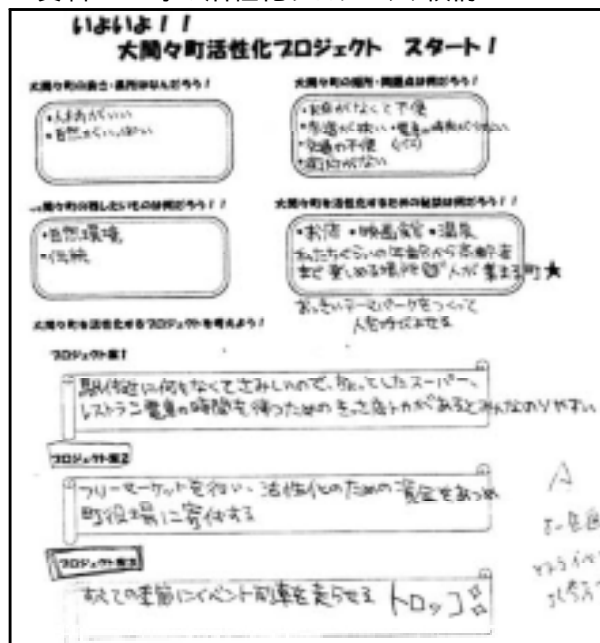 いよいよ！！
大間々町活性化プロジェクト スタート！
大間々町の良さ・長所はなんだろう！
大間々町の短所・問題点は何だろう！
・人柄がいい
・自然がいっぱい
・お店がなくて不便
・歩道が狭い ・電車の時間が少ない
・交通の不便 (バス)
・街灯がない
間々町の残したいものは何だろう！！
大間々町を活性化するための秘訣は何だろう！！
・自然環境
・伝統
・お店 ・映画館 ・温泉
私たちぐらいの年齢から高齢者
まで楽しめる場所 人が集まる町★
おっきいテーマパークをつくって
人を呼びよせる
大間々町を活性化するプロジェクトを考えよう！
プロジェクト案1
駅付近に何もなくてさみしいので、 としたスーパー、
レストラン 電車の時間を待つための きっさ店とかがあるとみんなのりやすい
プロジェクト案2
フリーマーケットを行い、活性化のための資金をあつめ
町役場に寄付する
プロジェクト案3
すべての季節にイベント列車を走らせる トロッコ☆☆
A